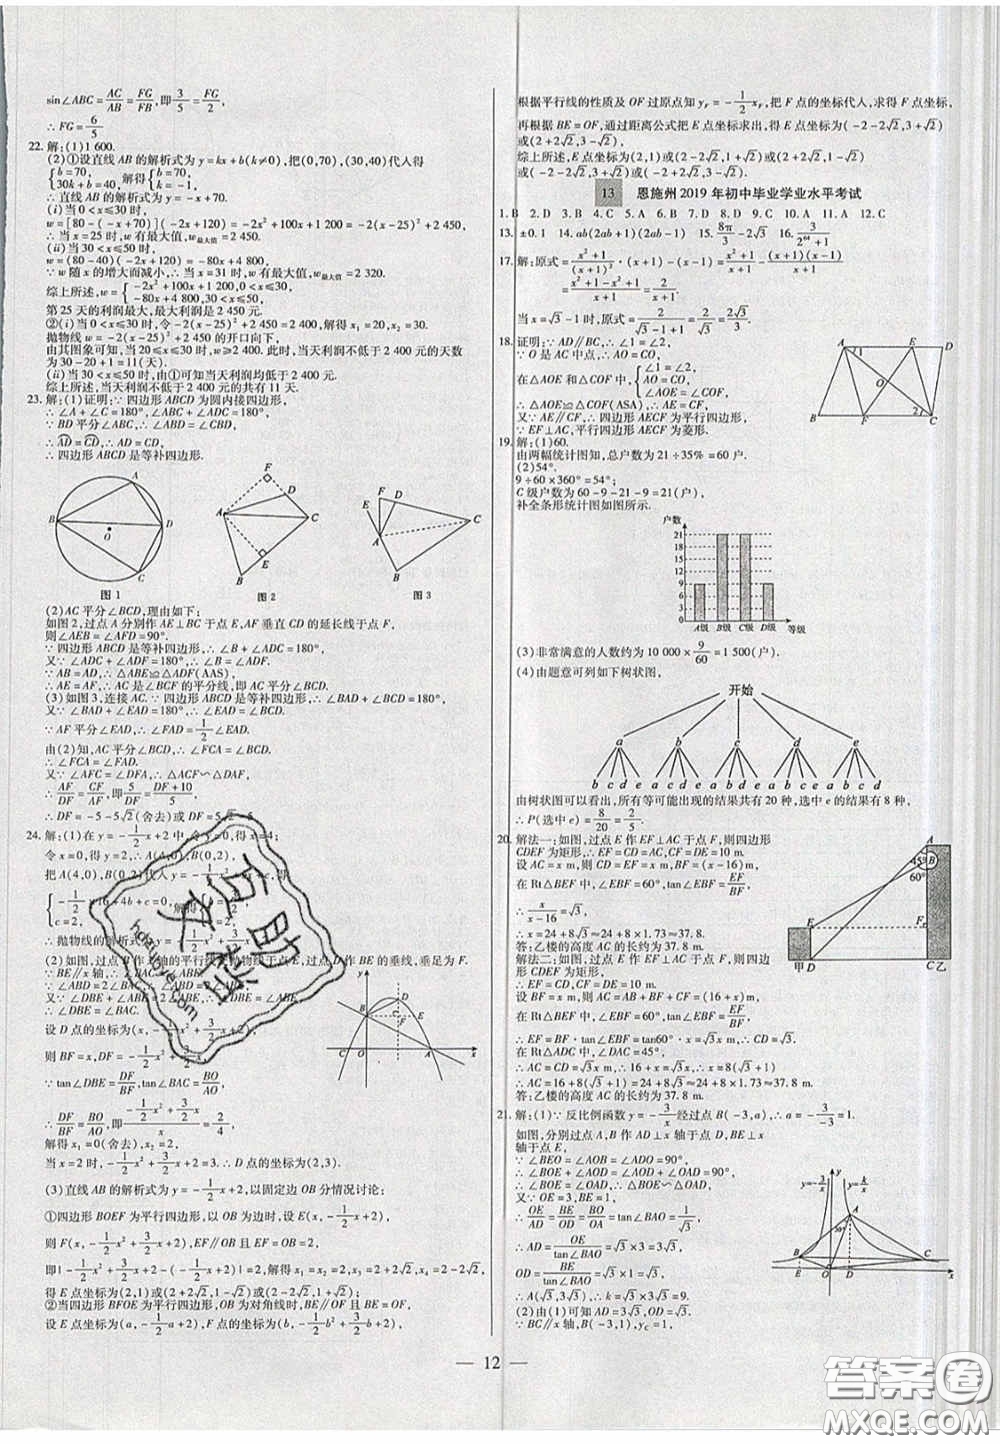 sin∠ABC=AC/AB=FG/FB,即3/5=FG/2,
∴FG=6/5
22.解:(1)1 600.
(2)①设直线AB的解析式为y=kx+b(k≠0),把(0,70),(30,40)代入得
{b=70, 30k+b=40, 解得{b=70, k=-1.
∴直线AB的解析式为y=-x+70.
(ⅰ)当0<x≤30时,
w=[80-(-x+70)](-2x+120)=-2x²+100x+1 200=-2(x-25)²+2 450,
∴当x=25时,w有最大值,w最大值=2 450.
(ⅱ)当30<x≤50时,
w=(80-40)(-2x+120)=-80x+4 800.
∵w随x的增大而减小,∴当x=31时,w有最大值=2 320.
综上所述,w={-2x²+100x+1 200, -80x+4 800,
第25天的利润最大,最大利润是2 450元.
②(ⅰ)当0<x≤30时,令-2(x-25)²+2 450=2 400,解得x₁=20,x₂=30.
抛物线w=-2(x-25)²+2 450的开口向下,
由其图象可知,当20≤x≤30时,w≥2 400.此时,当天利润不低于2 400元的天数
为30-20+1=11(天).
(ⅱ)当30<x≤50时,由①可知当天利润均低于2 400元.
综上所述,当天利润不低于2 400元的共有11天.
23.解:(1)证明:∵四边形ABCD为圆内接四边形,
∴∠A+∠C=180°,∠ABC+∠ADC=180°.
∵BD平分∠ABC,∴∠ABD=∠CBD.
∴AD=CD,∴AD=CD.
∴四边形ABCD是等补四边形.
A B D O C
图1
F D A C E B
图2
F D E C A B
图3
(2)AC平分∠BCD,理由如下:
如图2,过点A分别作AE⊥BC于点E,AF垂直CD的延长线于点F,
则∠AEB=∠AFD=90°.
∵四边形ABCD是等补四边形,∴∠B+∠ADC=180°.
又∵∠ADC+∠ADF=180°,∴∠B=∠ADF.
∵AB=AD,∴△ABE≌△ADF(AAS).
∴AE=AF,∴AC是∠BCF的平分线,即AC平分∠BCD.
(3)如图3,连接AC.∵四边形ABCD是等补四边形,∴∠BAD+∠BCD=180°,
又∵∠BAD+∠EAD=180°,∴∠EAD=∠BCD.
∵AF平分∠EAD,∴∠FAD=1/2∠EAD.
由(2)知,AC平分∠BCD,∴∠FCA=1/2∠BCD.
∴∠FCA=∠FAD.
又∵∠AFC=∠DFA,∴△ACF∽△DAF,
∴AF/DF=CF/AF,即5/DF=(DF+10)/5,
∴DF=-5-5√2(舍去)或DF=5√2-5.
24.解:(1)在y=-1/2x+2中,令y=0,得x=4;
令x=0,得y=2.∴A(4,0),B(0,2),
把A(4,0),B(0,2)代入y=-1/2x²+bx+c,得
{-1/2×16+4b+c=0, c=2, 解得
∴抛物线的解析式为y=-1/2x²+3/2x+2.
∵BE∥x轴,∴∠BAC=∠ABE.
∵∠ABD=2∠BAC,∴∠ABD=2∠ABE.
即∠DBE+∠ABE=2∠ABE,
∴∠DBE=∠ABE.
设D点的坐标为(x,-1/2x²+3/2x+2),
则BF=x,DF=-1/2x²+3/2x.
∵tan∠DBE=DF/BF,tan∠BAC=BO/AO,
∴DF/BF=BO/AO,即(-1/2x²+3/2x)/x=2/4,
解得x₁=0(舍去),x₂=2.
当x=2时,-1/2x²+3/2x+2=3.∴D点的坐标为(2,3).
(3)直线AB的解析式为y=-1/2x+2,以固定边OB分情况讨论:
①四边形BOEF为平行四边形,以OB为边时,设E(x,-1/2x+2),
则F(x,-1/2x²+3/2x+2)或以OB=EF=2,
即|-1/2x²+3/2x+2-(-1/2x+2)|=2,解得x₁=x₂=2,x₃=2+2√2,x₄=2-2√2,
得E点坐标为(2,1)或(2+2√2,1-√2)或(2-2√2,1+√2).
②当四边形BFOE为平行四边形,OB为对角线时,BE∥OF且BE=OF.
设E点坐标为(a,-1/2a+2),F点的坐标为(b,-1/2b²+3/2b+2),
根据平行线的性质及OF过原点知yF=-1/2xF,把F点的坐标代入,求得F点坐标,
再根据BE=OF,通过距离公式把E点坐标求出,得E点坐标为(-2-2√2,3+√2)
或(2+2√2,3-√2),
综上所述,E点坐标为(2,1)或(2-2√2,1+√2)或(2+2√2,1-√2)
或(-2-2√2,3+√2)或(-2+2√2,3-√2).
13 恩施州2019年初中毕业学业水平考试
1.B 2.D 3.B 4.C 5.C 6.D 7.C 8.D 9.C 10.A 11.A 12.C
13.±0.1 14.ab(2ab+1)(2ab-1) 15.8π/3-2√3 16.3/(2⁶⁴+1)
17.解:原式=(x²+1)/(x+1)²·(x+1)-(x-1)=(x²+1)/(x+1)-(x+1)(x-1)/(x+1)
=(x²+1-x²+1)/(x+1)=2/(x+1).
当x=√3-1时,原式=2/(√3-1+1)=2/√3=2√3/3.
18.证明:∵AD∥BC,∴∠1=∠2.
∵O是AC中点,∴AO=CO.
在△AOE和△COF中,{∠1=∠2, AO=CO, ∠AOE=∠COF,
∴△AOE≌△COF(ASA),∴AE=CF.
又∵AE∥CF,∴四边形AECF为平行四边形.
∵EF⊥AC,平行四边形AECF为菱形.
A 1 E D O 2 B F C
19.解:(1)60.
由两幅统计图知,总户数为21÷35%=60(户).
(2)54°.
9÷60×360°=54°;
C级户数为60-9-21-9=21(户),
补全条形统计图如图所示.
户数
21
18
15
12
9
6
3
0
A级 B级 C级 D级 等级
(3)非常满意的人数约为10 000×9/60=1 500(户).
(4)由题意可列如下树状图,
开始
a b c d e
b c d e a c d e a b d e a b c e a b c d
由树状图可以看出,所有等可能出现的结果共有20种,选中e的结果有8种,
∴P(选中e)=8/20=2/5.
20.解法一:如图,过点E作EF⊥AC于点F,则四边形
CDEF为矩形,∴EF=CD,CF=DE=10 m.
设AC=x m,则CD=EF=x m,BF=(x-16)m,
在Rt△BEF中,∠EBF=60°,tan∠EBF=EF/BF,
∴x/(x-16)=√3,
∴x=24+8√3≈24+8×1.73≈37.8.
答:乙楼的高度AC的长约为37.8 m.
解法二:如图,过点E作EF⊥AC于点F,则四边
形CDEF为矩形.
∴EF=CD,CF=DE=10 m.
设BF=x m,则AC=CD=EF=(16+x)m,
在Rt△BEF中,∠EBF=60°,tan∠EBF=EF/BF,
∴EF=BF·tan∠EBF=tan60°·x=√3x.
在Rt△ADC中,∠DAC=45°,
∴AC=CD=EF=√3x,∴16+x=√3x,∴x=8(√3+1),
∴AC=16+8(√3+1)=24+8√3≈24+8×1.73≈37.8 m.
答:乙楼的高度AC的长约为37.8 m.
A 45° B 60° E F 甲 D C 乙
21.解:(1)∵反比例函数y=-3/x经过点B(-3,a),∴a=-3/-3=1.
如图,分别过点A,B作AD⊥x轴于点D,BE⊥x
轴于点E,
∵∠BEO=∠AOB=∠ADO=90°,
∴∠BOE+∠AOD=∠AOD+∠OAD=90°,
∴∠BOE=∠OAD,∴△BOE∽△OAD,
又∵OE=3,BE=1,
∴OE/AD=OB/OA=BE/OD=tan∠BAO=1/√3,
∴AD=OE/tan∠BAO=√3×3=3√3,
OD=BE/tan∠BAO=√3×1=√3,
∴A(√3,3√3),∴k=√3×3√3=9.
(2)由(1)可知AD=3√3,
∵BC∥x轴,B(-3,1),yC=1,
— 12 —
答案圈
MXQE.COM